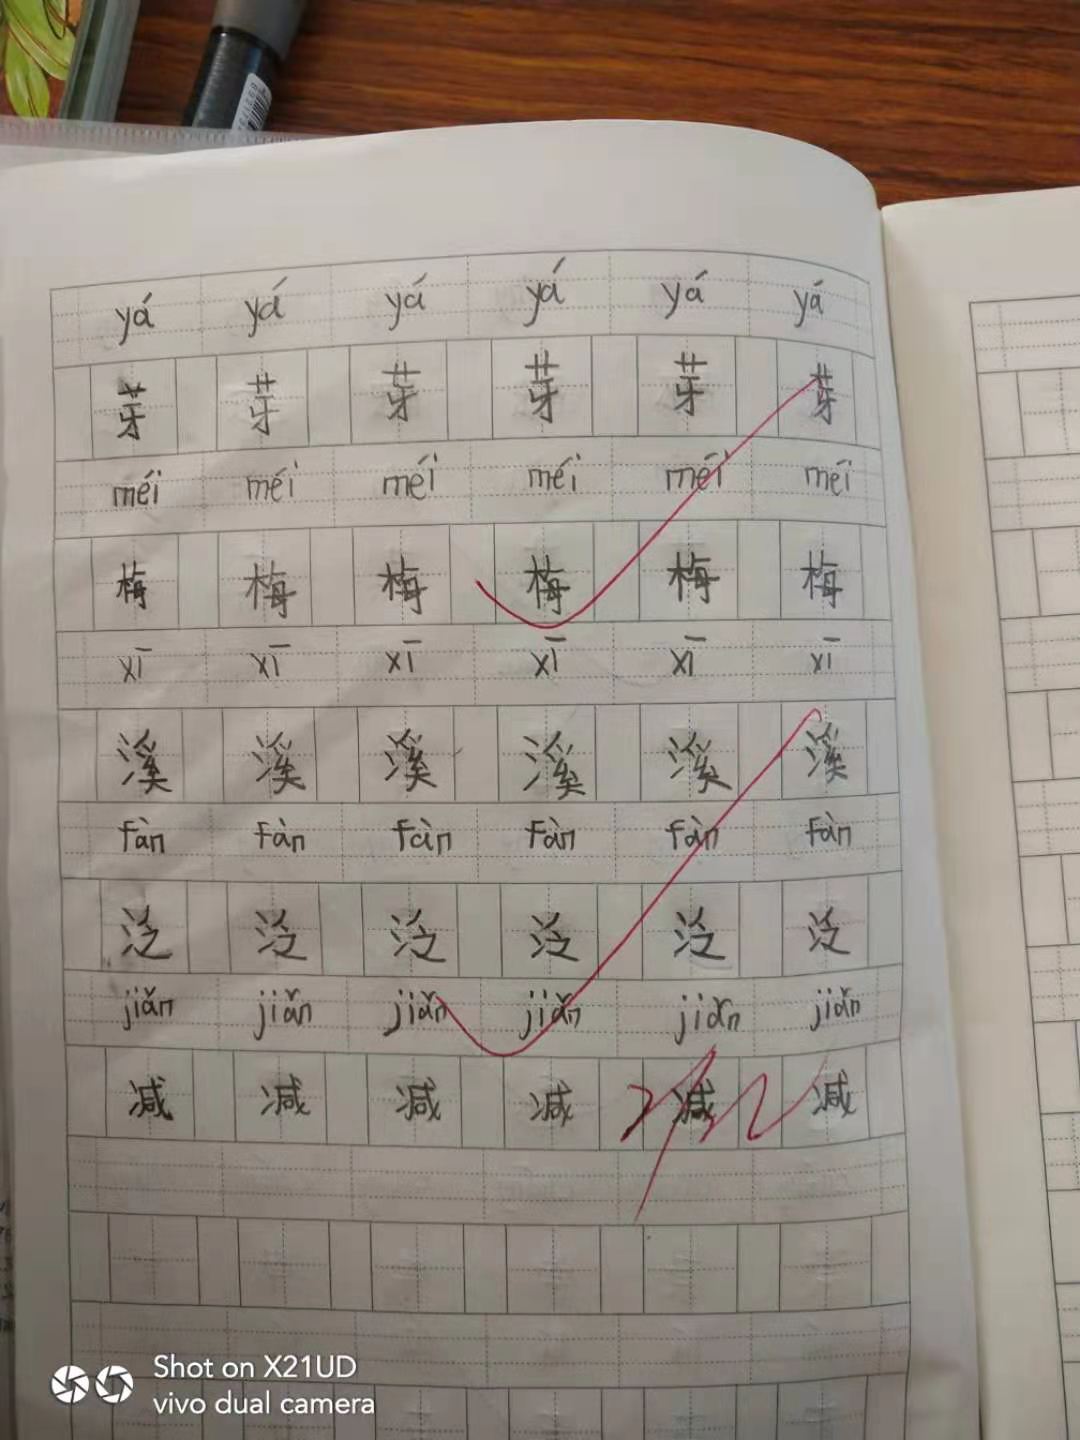 yá yá yá yá yá yá
芽 芽 芽 芽 芽 芽
méi méi méi méi méi méi
梅 梅 梅 梅 梅 梅
xī xī xī xī xī xī
溪 溪 溪 溪 溪 溪
fàn fàn fàn fàn fàn fàn
泛 泛 泛 泛 泛 泛
jiǎn jiǎn jiǎn jiǎn jiǎn jiǎn
减 减 减 减 减 减
Shot on X21UD
vivo dual camera